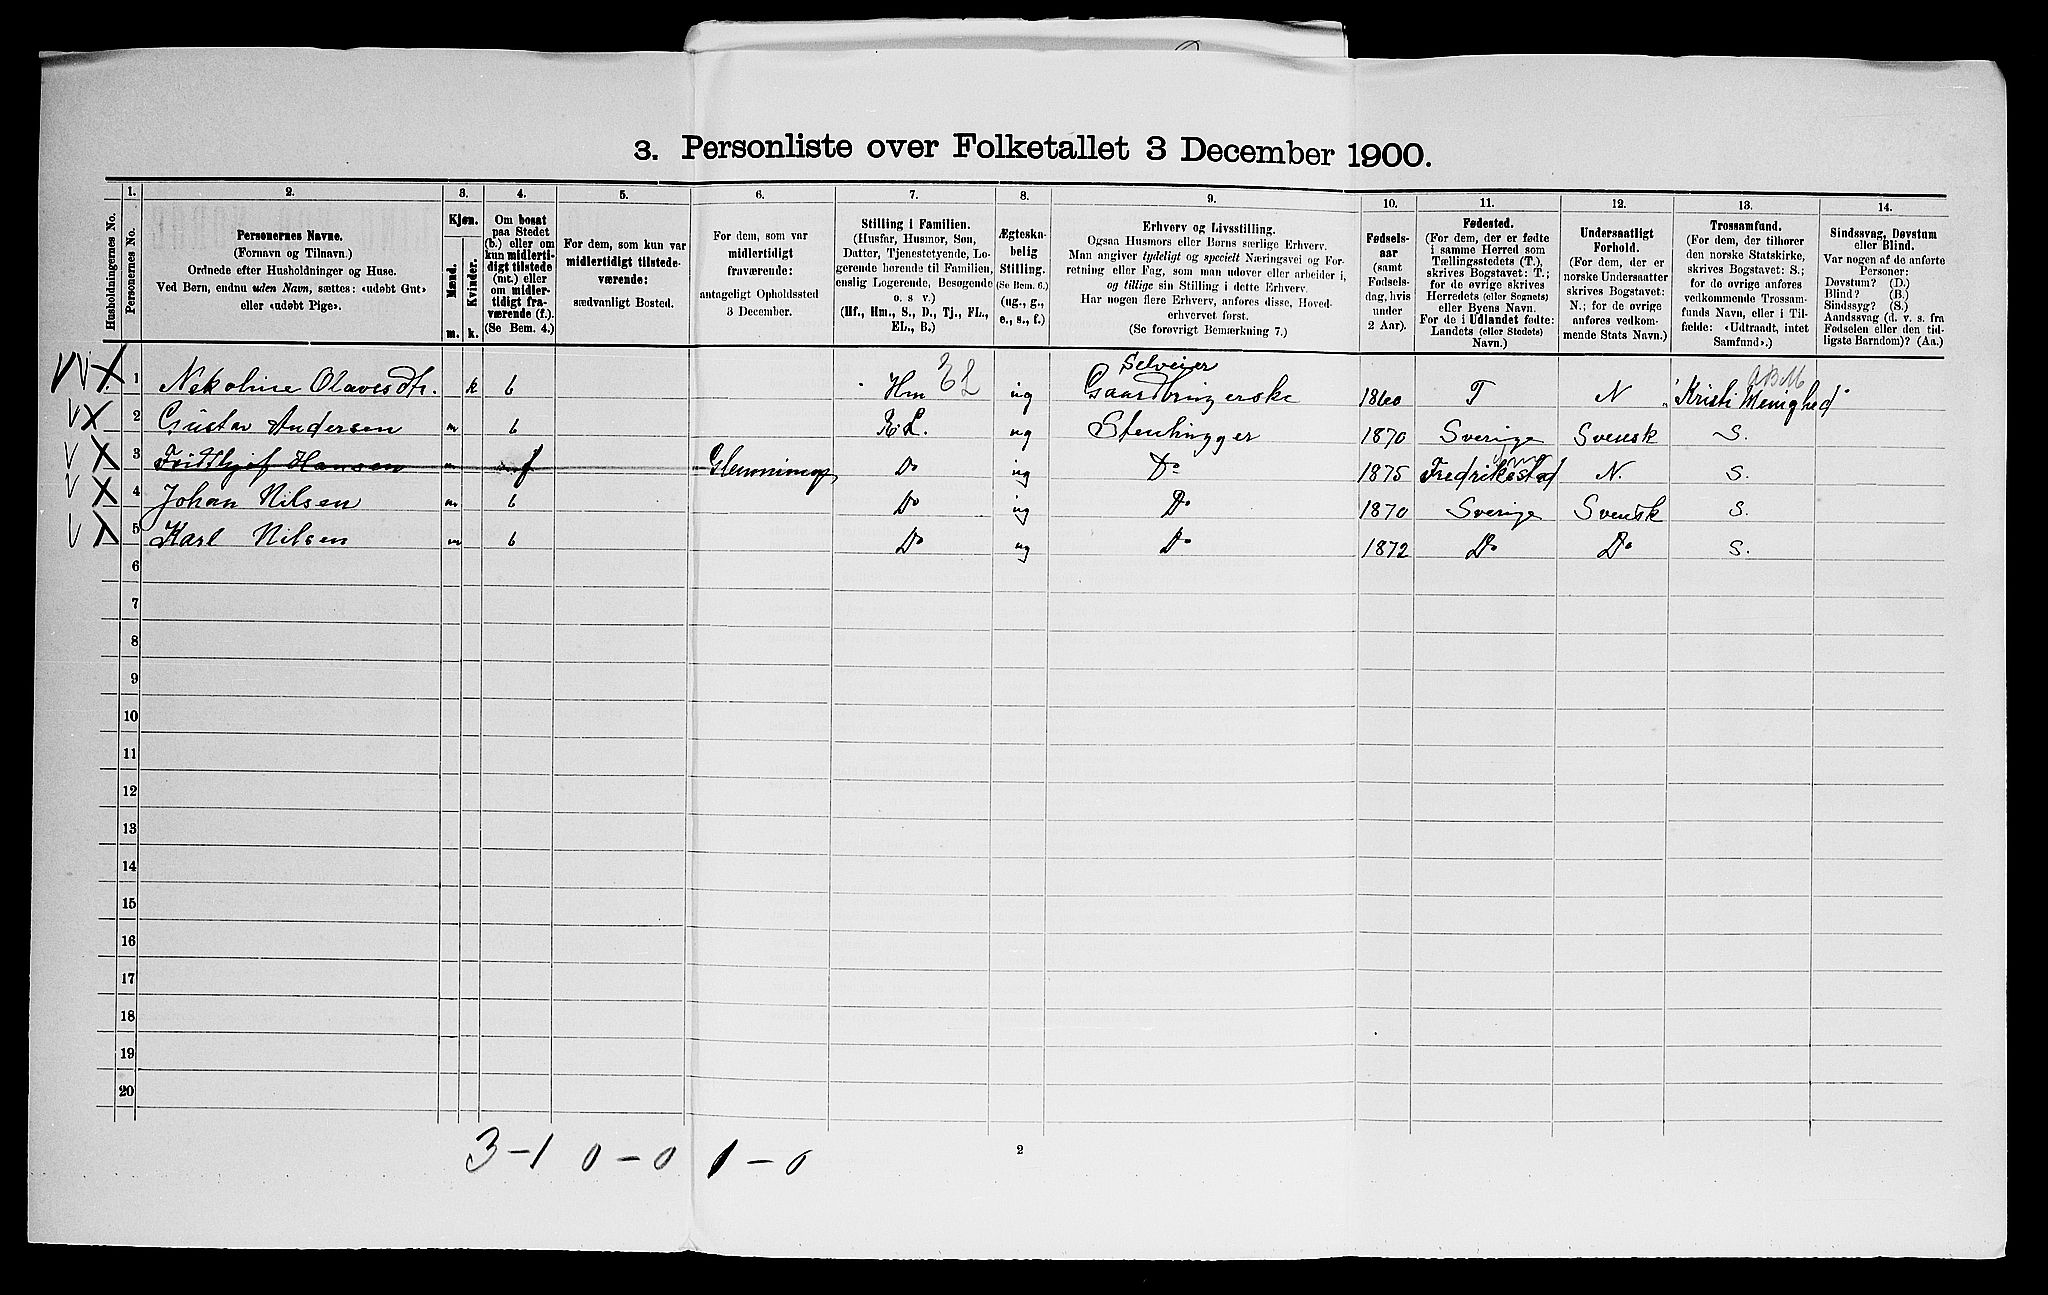 3. Personliste over Folketallet 3 December 1900.
1. 2. 3. 4. 5. 6. 7. 8. 9. 10. 11. 12. 13. 14.
Husholdningernes No.
Personernes No.
Personernes Navne.
(Fornavn og Tilnavn.)
Ordnede efter Husholdninger og Huse.
Ved Børn, endnu uden Navn, sættes: «udøbt Gut»
eller «udøbt Pige».
Kjøn.
Mænd.
Kvinder.
m. k.
Om bosat
paa Stedet
(b.) eller om
kun midlerti-
digt tilstede
(mt.) eller
om midler-
tidigt fra-
værende (f.).
(Se Bem. 4.)
For dem, som kun var
midlertidigt tilstede-
værende:
sædvanligt Bosted.
For dem, som var
midlertidigt
fraværende:
antageligt Opholdssted
3 December.
Stilling i Familien.
(Husfar, Husmor, Søn,
Datter, Tjenestetyende, Lo-
gerende hørende til Familien,
enslig Logerende, Besøgende
o. s. v.)
(Hf., Hm., S., D., Tj., FL.,
EL., B.)
Ægteska-
belig
Stilling.
(Se Bem. 6.)
(ug., g.,
e., s., f.)
Erhverv og Livsstilling.
Ogsaa Husmors eller Børns særlige Erhverv.
Man angiver tydeligt og specielt Næringsvei og For-
retning eller Fag, som man udøver eller arbeider i,
og tillige sin Stilling i dette Erhverv.
Har nogen flere Erhverv, anføres disse, Hoved-
erhvervet først.
(Se forøvrigt Bemærkning 7.)
Fødsels-
aar
(samt
Fødsels-
dag, hvis
under
2 Aar).
Fødested.
(For dem, der er fødte
i samme Herred som
Tællingsstedets (T.),
skrives Bogstavet: T.;
for de øvrige skrives
Herredets (eller Sognets)
eller Byens Navn.
For de i Udlandet fødte:
Landets (eller Stedets)
Navn.)
Undersaatligt
Forhold.
(For dem, der er
norske Undersaatter
skrives Bogstavet:
N.; for de øvrige
anføres vedkom-
mende Stats Navn.)
Trossamfund.
(For dem, der tilhører
den norske Statskirke,
skrives Bogstavet: S.;
for de øvrige anføres
vedkommende Trossam-
funds Navn, eller i Til-
fælde: «Udtraadt, intet
Samfund».)
Sindssvag, Døvstum
eller Blind.
Var nogen af de anførte
Personer:
Døvstum? (D.)
Blind? (B.)
Sindssyg? (S.)
Aandssvag (d. v. s. fra
Fødselen eller den tid-
ligste Barndom)? (Aa.)
1 Nekoline Olavesdtr. k b Hm EL ug Selveier Gaardbrugerske 1860 T N "Kristi Menighed"
2 Gustav Andersen m b EL. ug Stenhugger 1870 Sverige Svensk S.
3 Fridthjof Hansen m f Glemminge Do ug Do 1875 Fredrikstad N. S.
4 Johan Nilsen m b Do ug Do 1870 Sverige Svensk S.
5 Karl Nilsen m b Do ug Do 1872 Do Do S.
6
7
8
9
10
11
12
13
14
15
16
17
18
19
20
3-1 0-0 1-0
2